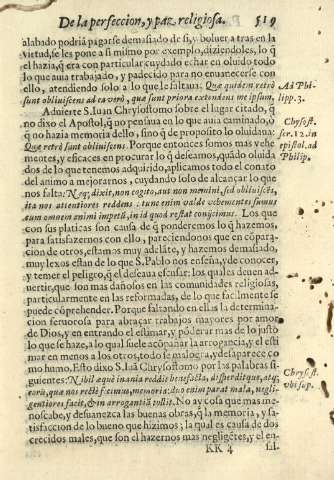 De la perfeccion, y paz religiosa. 519
alabado podriá pagarse demasiado de si, y boluer a tras en la
virtud, se les pone a si mismo por exemplo, diziendoles, lo q̃
el hazia, q̃ era con particular cuydado echar en oluido todo
lo que auia trabajado, y padecido para no enuanecerle con
ello, atendiendo solo a lo que le faltaua. Quæ quidem retrò
sunt obliuiscens ad ea verò, quæ sunt priora extendens me ipsum.
Ad Phi-
lipp. 3.
Aduierte S. Iuan Chrysostomo sobre el lugar citado, q̃
no dixo el Apostol, q̃ no pensaua en lo que auia caminado, q̃
no hazia memoria dello, sino q̃ de proposito lo oluidaua:
Quæ retrò sunt obliuiscens. Porque entonces somos mas vehe-
mentes, y eficaces en procurar lo q̃ deseamos, quãdo oluida
dos de lo que tenemos adquirido, aplicamos todo el conato
del animo a mejorarnos, cuydando solo de alcançar lo que
nos falta: Neq; dixit, non cogito, aut non memini, sed obliuiscẽs,
ita nos attentiores reddens: tunc enim valde vehementes sumus
cum omnem animi impetũ, in id quod restat conijcimus. Los que
Chrysost.
ser. 12. in
epistol. ad
Philip.
con sus platicas son causa de q̃ ponderemos lo q̃ hazemos,
para satisfazernos con ello, pareciendonos que en cõpara-
cion de otros, estamos muy adelãte, y hazemos demasiado,
muy lexos estan de lo que S. Pablo nos enseña, y de conocer,
y temer el peligro, q̃ el deseaua escusar: los quales deuen ad-
uertir, que son mas dañosos en las comunidades religiosas,
particularmente en las reformadas, de lo que facilmente se
puede cõprehender. Porque faltando en ellas la determina-
cion feruorosa para abraçar trabajos mayores por amor
de Dios, y en entrando el estimar, y põderar mas de lo justo
lo que se haze, a lo qual suele acõpañar la arrogancia, y el esti
mar en menos a los otros, todo se malogra, y desaparece co
mo humo. Esto dixo S. Iuã Chrysostomo por las palabras si-
guientes: Nihil æquè inania reddit benefacta, disperditque, atq;
eorũ, quæ nos rectè fecimus, memoria: duo enim parat mala, negli-
gentiores facit, & in arrogantiã tollit. No ay cosa que mas me-
noscabe, y desuanezca las buenas obras, q̃ la memoria, y sa-
tisfaccion de lo bueno que hizimos; la qual es causa de dos
crecidos males, que son el hazernos mas negligẽtes, y el en-
Chrysost.
vbi sup.
KK 4